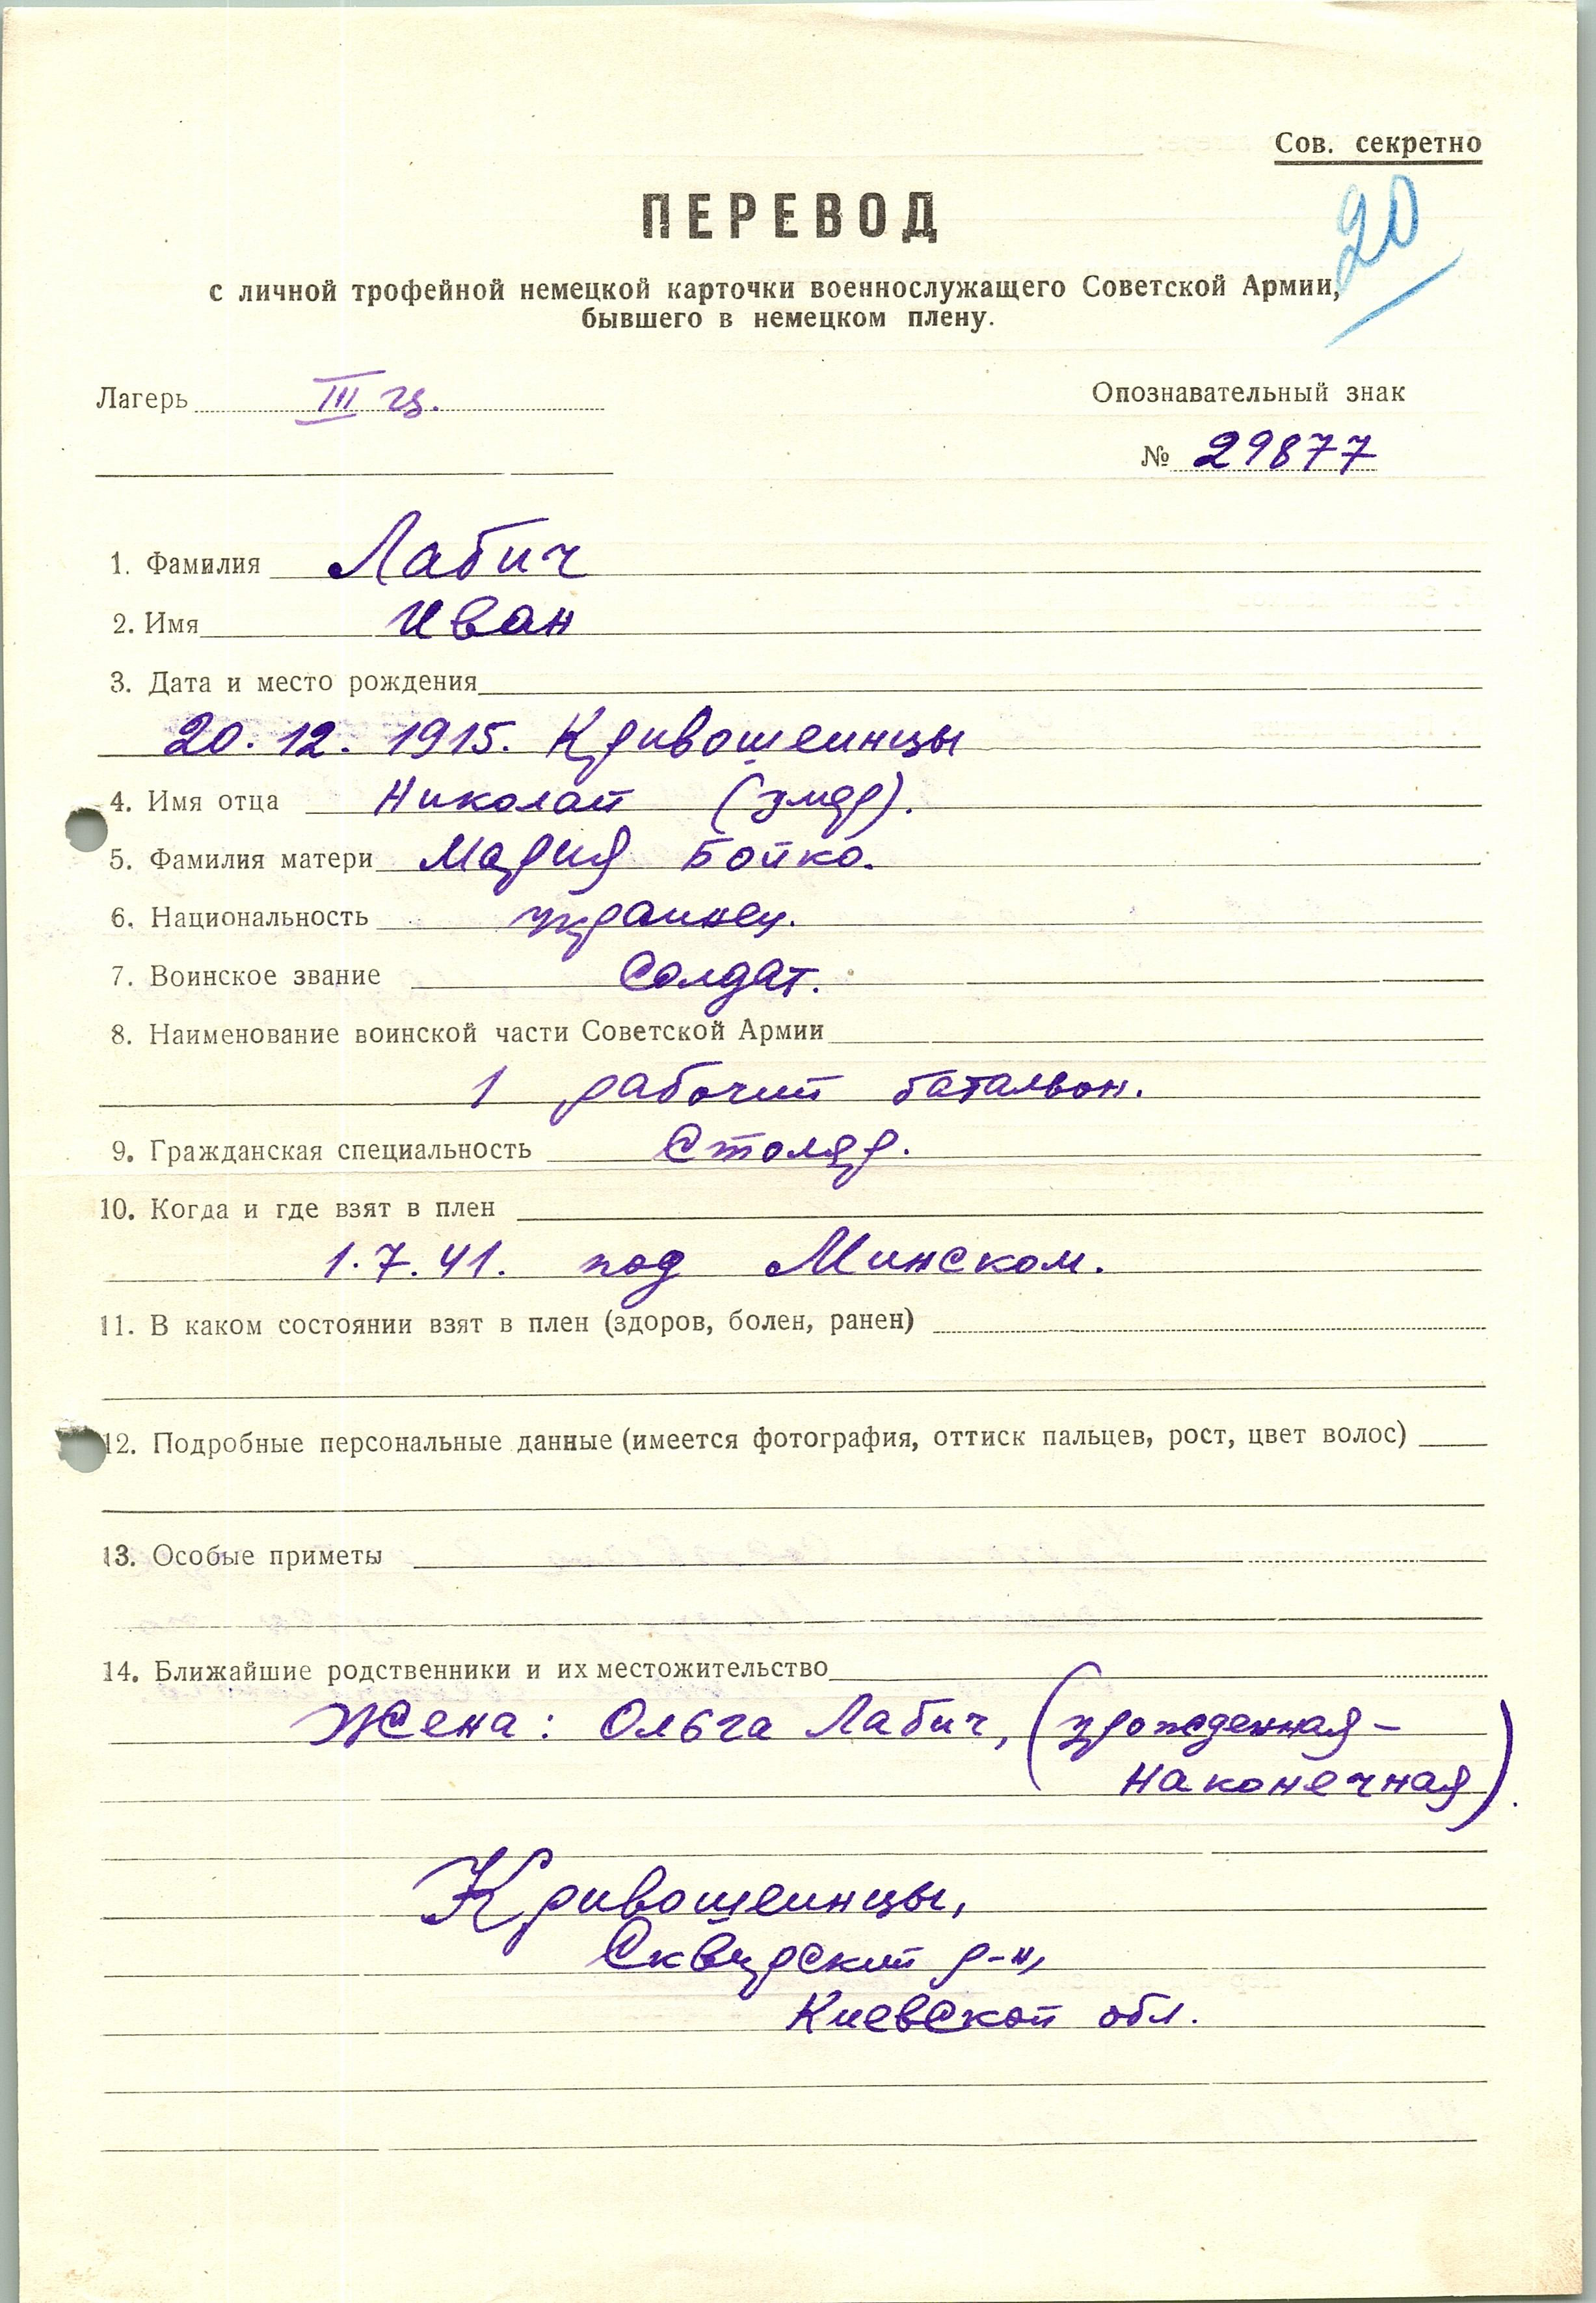 Сов. секретно
20
ПЕРЕВОД
с личной трофейной немецкой карточки военнослужащего Советской Армии,
бывшего в немецком плену.
Лагерь III гц.
Опознавательный знак
№ 29877
1. Фамилия Лабич
2. Имя Иван
3. Дата и место рождения
20.12.1915. Кривошеинцы
4. Имя отца Николай (умер).
5. Фамилия матери Мария Бойко.
6. Национальность украинец.
7. Воинское звание Солдат.
8. Наименование воинской части Советской Армии
1 рабочий батальон.
9. Гражданская специальность Столяр.
10. Когда и где взят в плен
1.7.41. под Минском.
11. В каком состоянии взят в плен (здоров, болен, ранен)
12. Подробные персональные данные (имеется фотография, оттиск пальцев, рост, цвет волос)
13. Особые приметы
14. Ближайшие родственники и их местожительство
Жена: Ольга Лабич, (урожденная –
Наконечная).
Кривошеинцы,
Сквирский р-н,
Киевской обл.